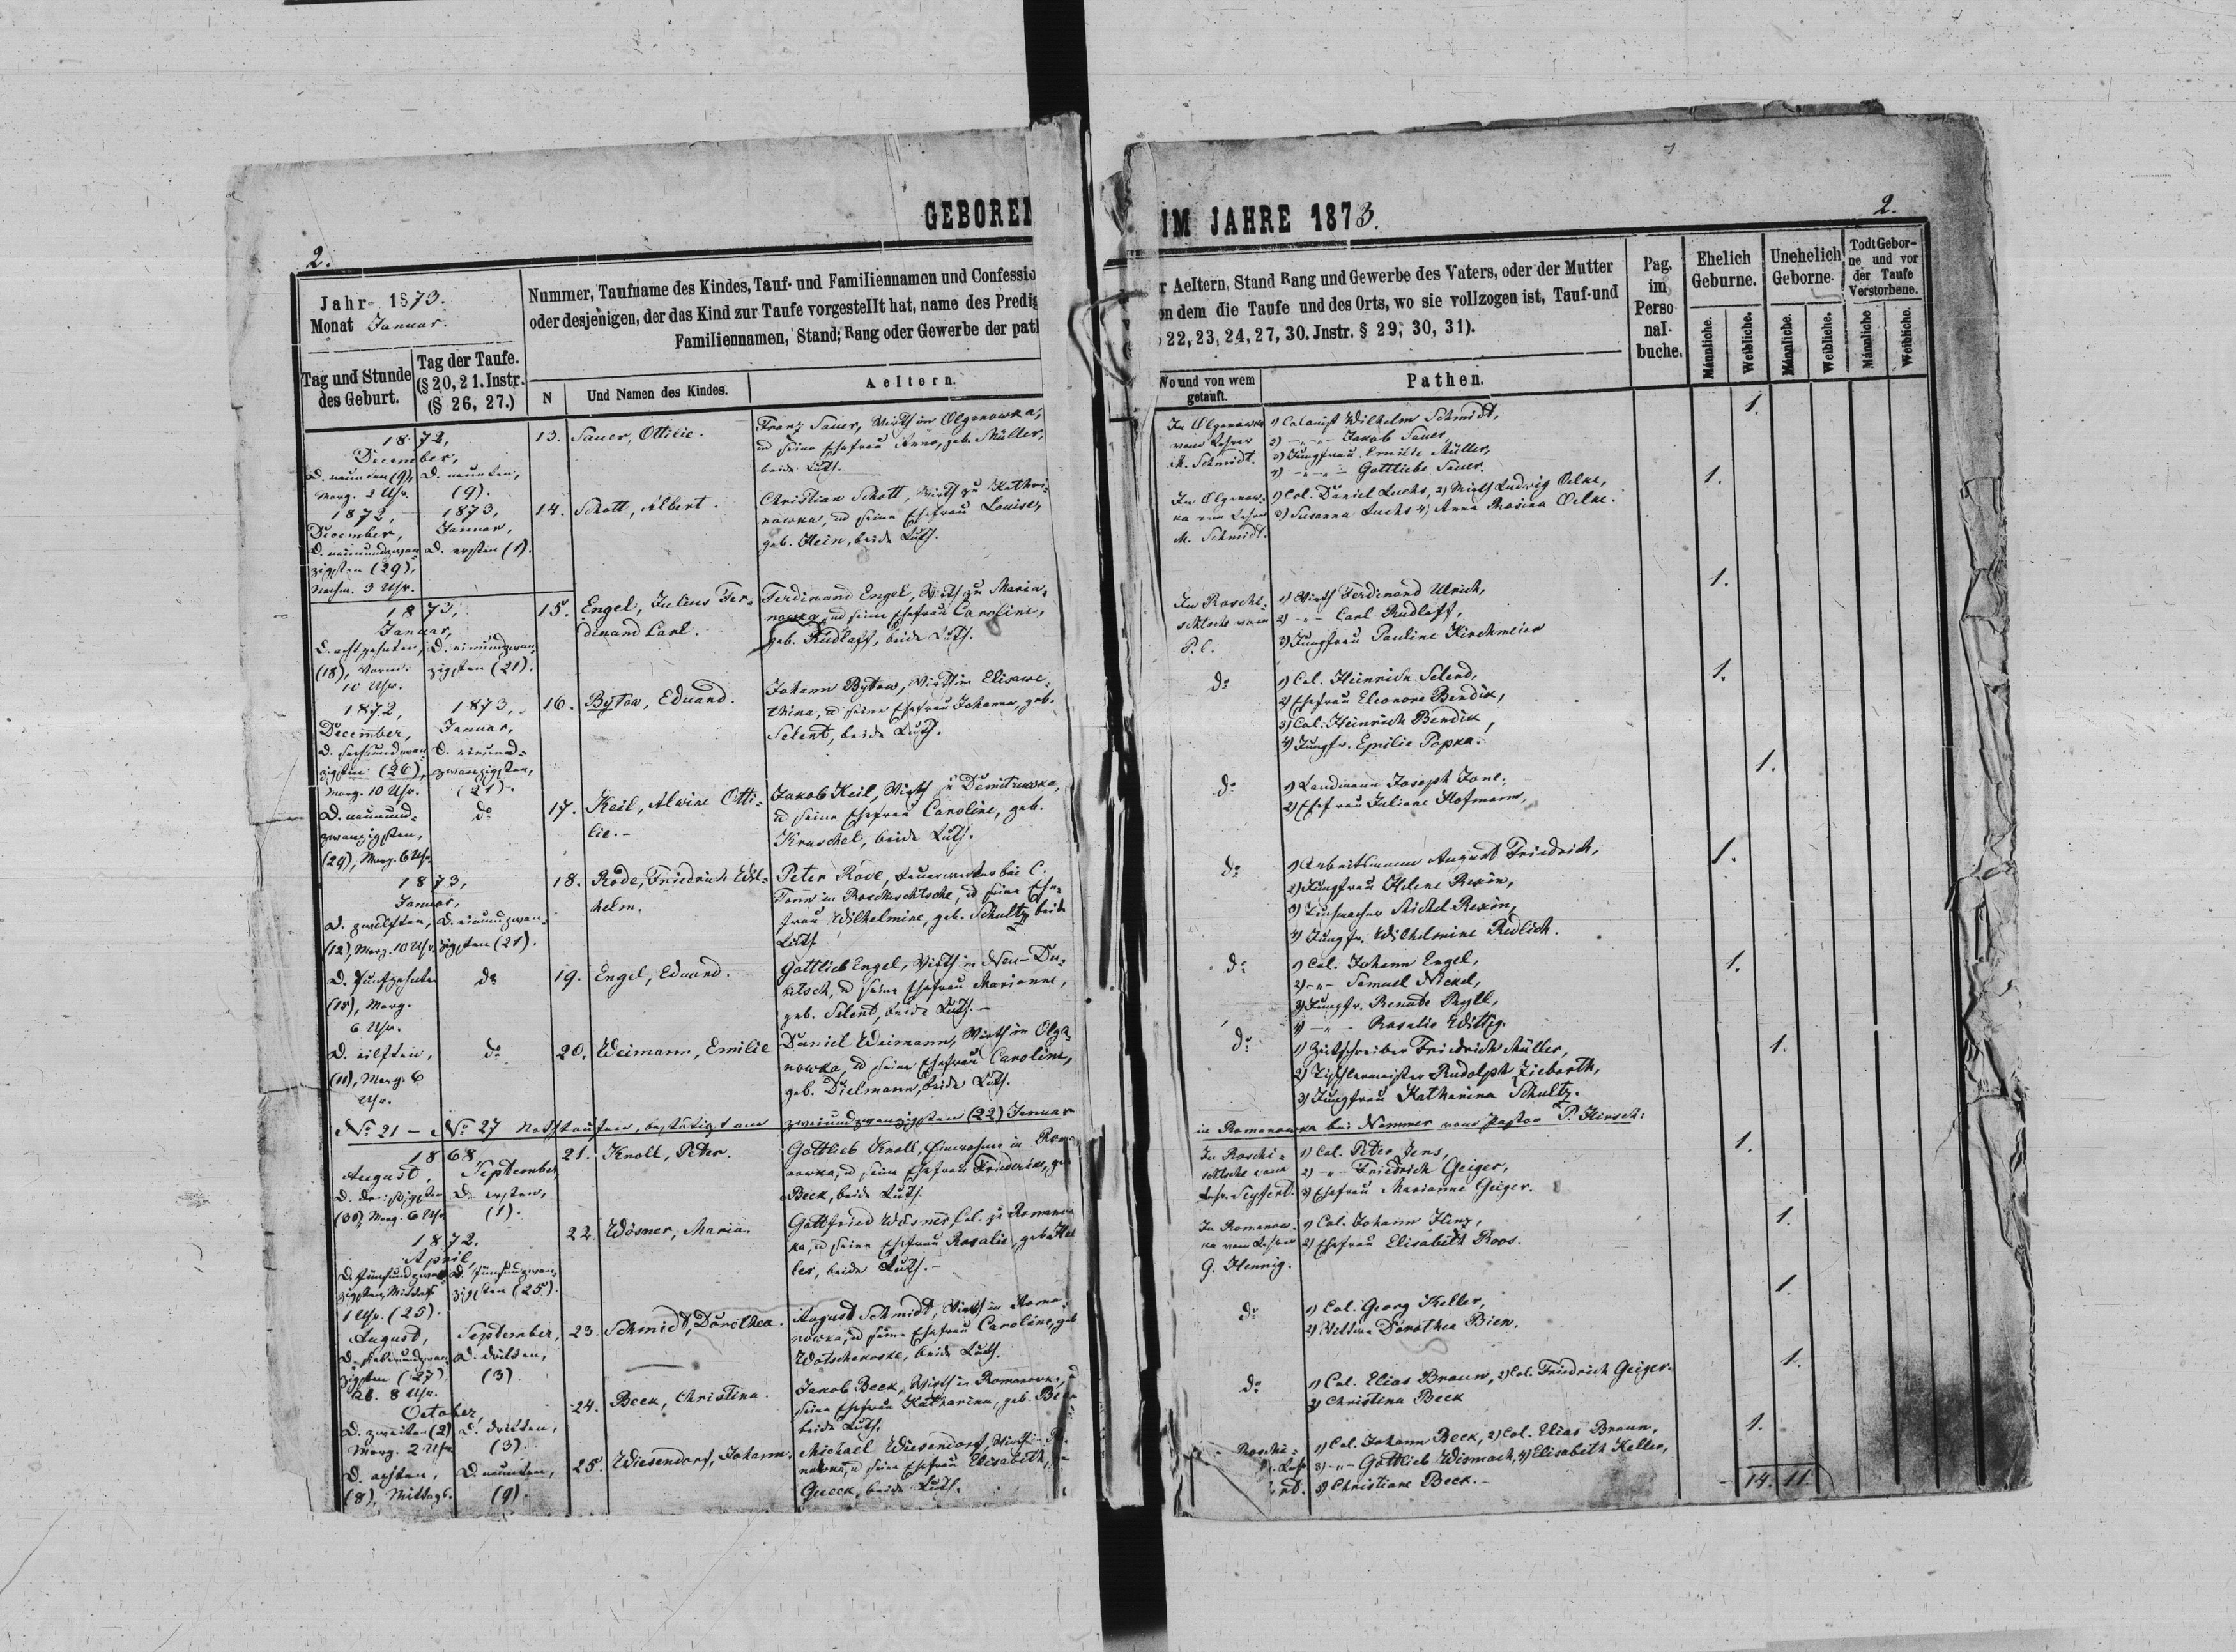 GEBOREN
IM JAHRE 1873.
2.
2.
Jahr 1873.
Monat Januar.
Tag und Stunde
des Geburt.
Tag der Taufe.
(§ 20, 21. Instr.
(§ 26, 27.)
Nummer, Taufname des Kindes, Tauf- und Familiennamen und Confessio
oder desjenigen, der das Kind zur Taufe vorgestellt hat, name des Predig
Familiennamen, Stand; Rang oder Gewerbe der pat
N
Und Namen des Kindes.
Aeltern.
r Aeltern, Stand Rang und Gewerbe des Vaters, oder der Mutter
on dem die Taufe und des Orts, wo sie vollzogen ist, Tauf-und
22, 23, 24, 27, 30. Jnstr. § 29, 30, 31).
Wo und von wem
getauft.
Pathen.
Pag.
im
Perso
nal-
buche.
Ehelich
Geburne.
Unehelich
Geborne.
Todt Gebor-
ne und vor
der Taufe
Verstorbene.
Männliche.
Weibliche.
Männliche.
Weibliche.
Männliche
Weibliche.
1872,
December,
D. neunten (9),
Morg. 2 Uhr.
D. neunten,
(9).
13. Sauer, Ottilie.
Franz Sauer, Wirth in Olganowka,
und seine Ehefrau Anna, geb. Müller,
beide Luth.
In Olganowka
vom Lehrer
M. Schmidt.
1) Colonist Wilhelm Schmidt,
2) -„- Jakob Sauer,
3) Jungfrau Emilie Müller,
4) -„- Gottliebe Sauer.
1.
1872,
December,
D. neunundzwan-
zigsten (29),
Nachm. 3 Uhr.
1873,
Januar,
D. ersten (1).
14. Schott, Albert.
Christian Schott, Wirth zu Kathri-
nowka, und seine Ehefrau Louise,
geb. Hein, beide Luth.
In Olganow-
ka vom Lehrer
M. Schmidt.
1) Col. Daniel Luchs, 2) Wirth Ludwig Oelke,
3) Susanna Luchs 4) Anna Rosina Oelke.
1.
1873,
Januar,
D. achtzehnten,
(18), Vorm.
10 Uhr.
D. einundzwan-
zigsten (21).
15. Engel, Julius Fer-
dinand Carl.
Ferdinand Engel, Wirth zu Maria-
nowka, und seine Ehefrau Caroline,
geb. Rudlaff, beide Luth.
In Roschi-
schtsche vom
P. C.
1) Wirth Ferdinand Ulrich,
2) -„- Carl Rudlaff,
3) Jungfrau Pauline Kirchmeier
1.
1872,
December,
D. sechsundzwan-
zigsten (26),
Morg. 10 Uhr.
1873,
Januar,
D. einund-
zwanzigsten,
(21).
16. Bytow, Eduard.
Johann Bytow, Wirth in Elisawe-
thina, und seine Ehefrau Johanna, geb.
Selent, beide Luth.
do
1) Col. Heinrich Selend,
2) Ehefrau Eleonore Bendik,
3) Col. Heinrich Bendik,
4) Jungfr. Emilie Popka.
1.
D. neunund-
zwanzigsten,
(29), Morg. 6 Uhr.
do
17. Keil, Alwine Otti-
lie.-
Jakob Keil, Wirth zu Demitrowka,
und seine Ehefrau Caroline, geb.
Kruschel, beide Luth.
do
1) Landmann Joseph
2) Ehefrau Juliane Hofmann,
1.
1873,
Januar,
D. zwölften,
(12), Morg. 10 Uhr.
D. einundzwan-
zigsten (21).
18. Rode, Friedrich Wil-
helm.
Peter Rode, bei C.
Tonn in Roschischtsche, und seine Ehe-
frau Wilhelmine, geb. Schultz, beide
Luth.
do
1) Arbeitsmann August Friedrich,
2) Jungfrau Helene Rexin,
3) Tuchmacher Michel Rexin,
4) Jungfr. Wilhelmine Redlich.
1.
D. fünfzehnten
(15), Morg.
6 Uhr.
do
19. Engel, Eduard.
Gottlieb Engel, Wirth in Neu-Du-
bitsch, und seine Ehefrau Marianne,
geb. Selent, beide Luth.-
do
1) Col. Johann Engel,
2) -„- Samuel Nickel,
3) Jungfr. Renate
4) -„- Rosalie Wittig.
1.
D. eilften,
(11), Morg. 6
Uhr.
do
20. Weimann, Emilie
Daniel Weimann, Wirth in Olga-
nowka, und seine Ehefrau Caroline,
geb. Dielmann, beide Luth.
do
1) Friedrich Müller,
2) Tischlermeister Rudolph Ziebarth,
3) Jungfrau Katharina Schultz.
1.
No 21 - No 27 Nothtaufen, bestätigt am zweiundzwanzigsten (22) Januar
in Romanowka bei Nemmer vom Pastor P. Hirsch:
1868,
August,
D. dreissigsten
(30), Morg. 6 Uhr.
September,
D. ersten,
(1).
21. Knoll, Peter.
Gottlieb Knoll, Einwohner in Roma
nowka, und seine Ehefrau Friederike, geb
Beck, beide Luth.
In Roschi-
schtsche vom
Lehr. Seyfert.
1) Col. Peter Jens,
2) -„- Friedrich Geiger,
3) Ehefrau Marianne Geiger.
1.
1872,
April,
D. fünfundzwan-
zigsten, Mittags
1 Uhr. (25).
D. fünfundzwan-
zigsten (25).
22. Wösner, Maria.
Gottfried Wösner, Col. zu Romanow
ka, und seine Ehefrau Rosalie, geb. Kel
ler, beide Luth.-
In Romanow-
ka vom Lehrer
G. Hennig.
1) Col. Johann Hinz,
2) Ehefrau Elisabeth Roos.
1.
August,
D. siebenundzwan-
zigsten (27),
Ab. 8 Uhr.
September,
D. dritten,
(3).
23. Schmidt, Dorothea.
August Schmidt, Wirth in Roma-
nowka, und seine Ehefrau Caroline, geb
Wotschekoske, beide Luth.
do
1) Col. Georg Keller,
2) Wittwe Dorothea Bien.
1.
October,
D. zweiten (2)
Morg. 2 Uhr.
D. dritten,
(3).
24. Beck, Christina.
Jakob Beck, Wirth in Romanowka, und
seine Ehefrau Katharina, geb.
beide Luth.
do
1) Col. Elias Braun, 2) Col. Friedrich Geiger.
3) Christina Beck
1.
D. achten,
(8), Mittags.
D. neunten,
(9).
25. Wiesendorf, Johann.
Michael Wiesendorf, Wirth in
nowka, und seine Ehefrau Elisabeth,
Queck, beide Luth.
Roschi-
1) Col. Johann Beck, 2) Col. Elias Braun,
3) -„- Gottlieb Wismach, 4) Elisabeth Keller,
5) Christiane Beck.-
1.
14. 11.